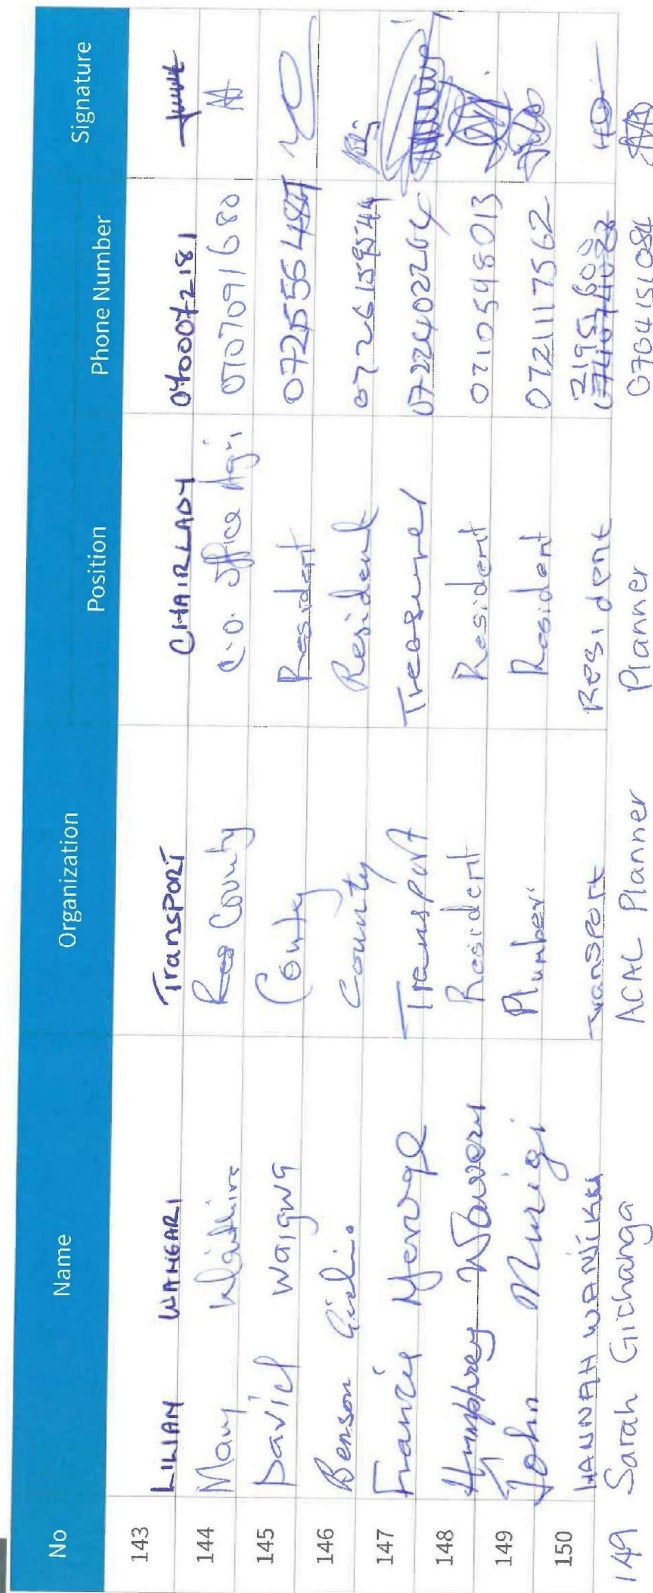 No Name Organization Position Phone Number Signature
143 LILIAN WANGARI Transport CHAIRLADY 0700072181
144 Mary County C.O. office Agri 0707091680
145 David Waigwa County Resident
146 Benson County Resident
147 Francis Transport Treasurer 0722402264
148 Humphrey Resident Resident 0710548013
149 John Murigi Plumber Resident 0721117562
150 HANNAH WANJIKU Transport Resident
149 Sarah Gichanga ACAL Planner Planner 0704151084